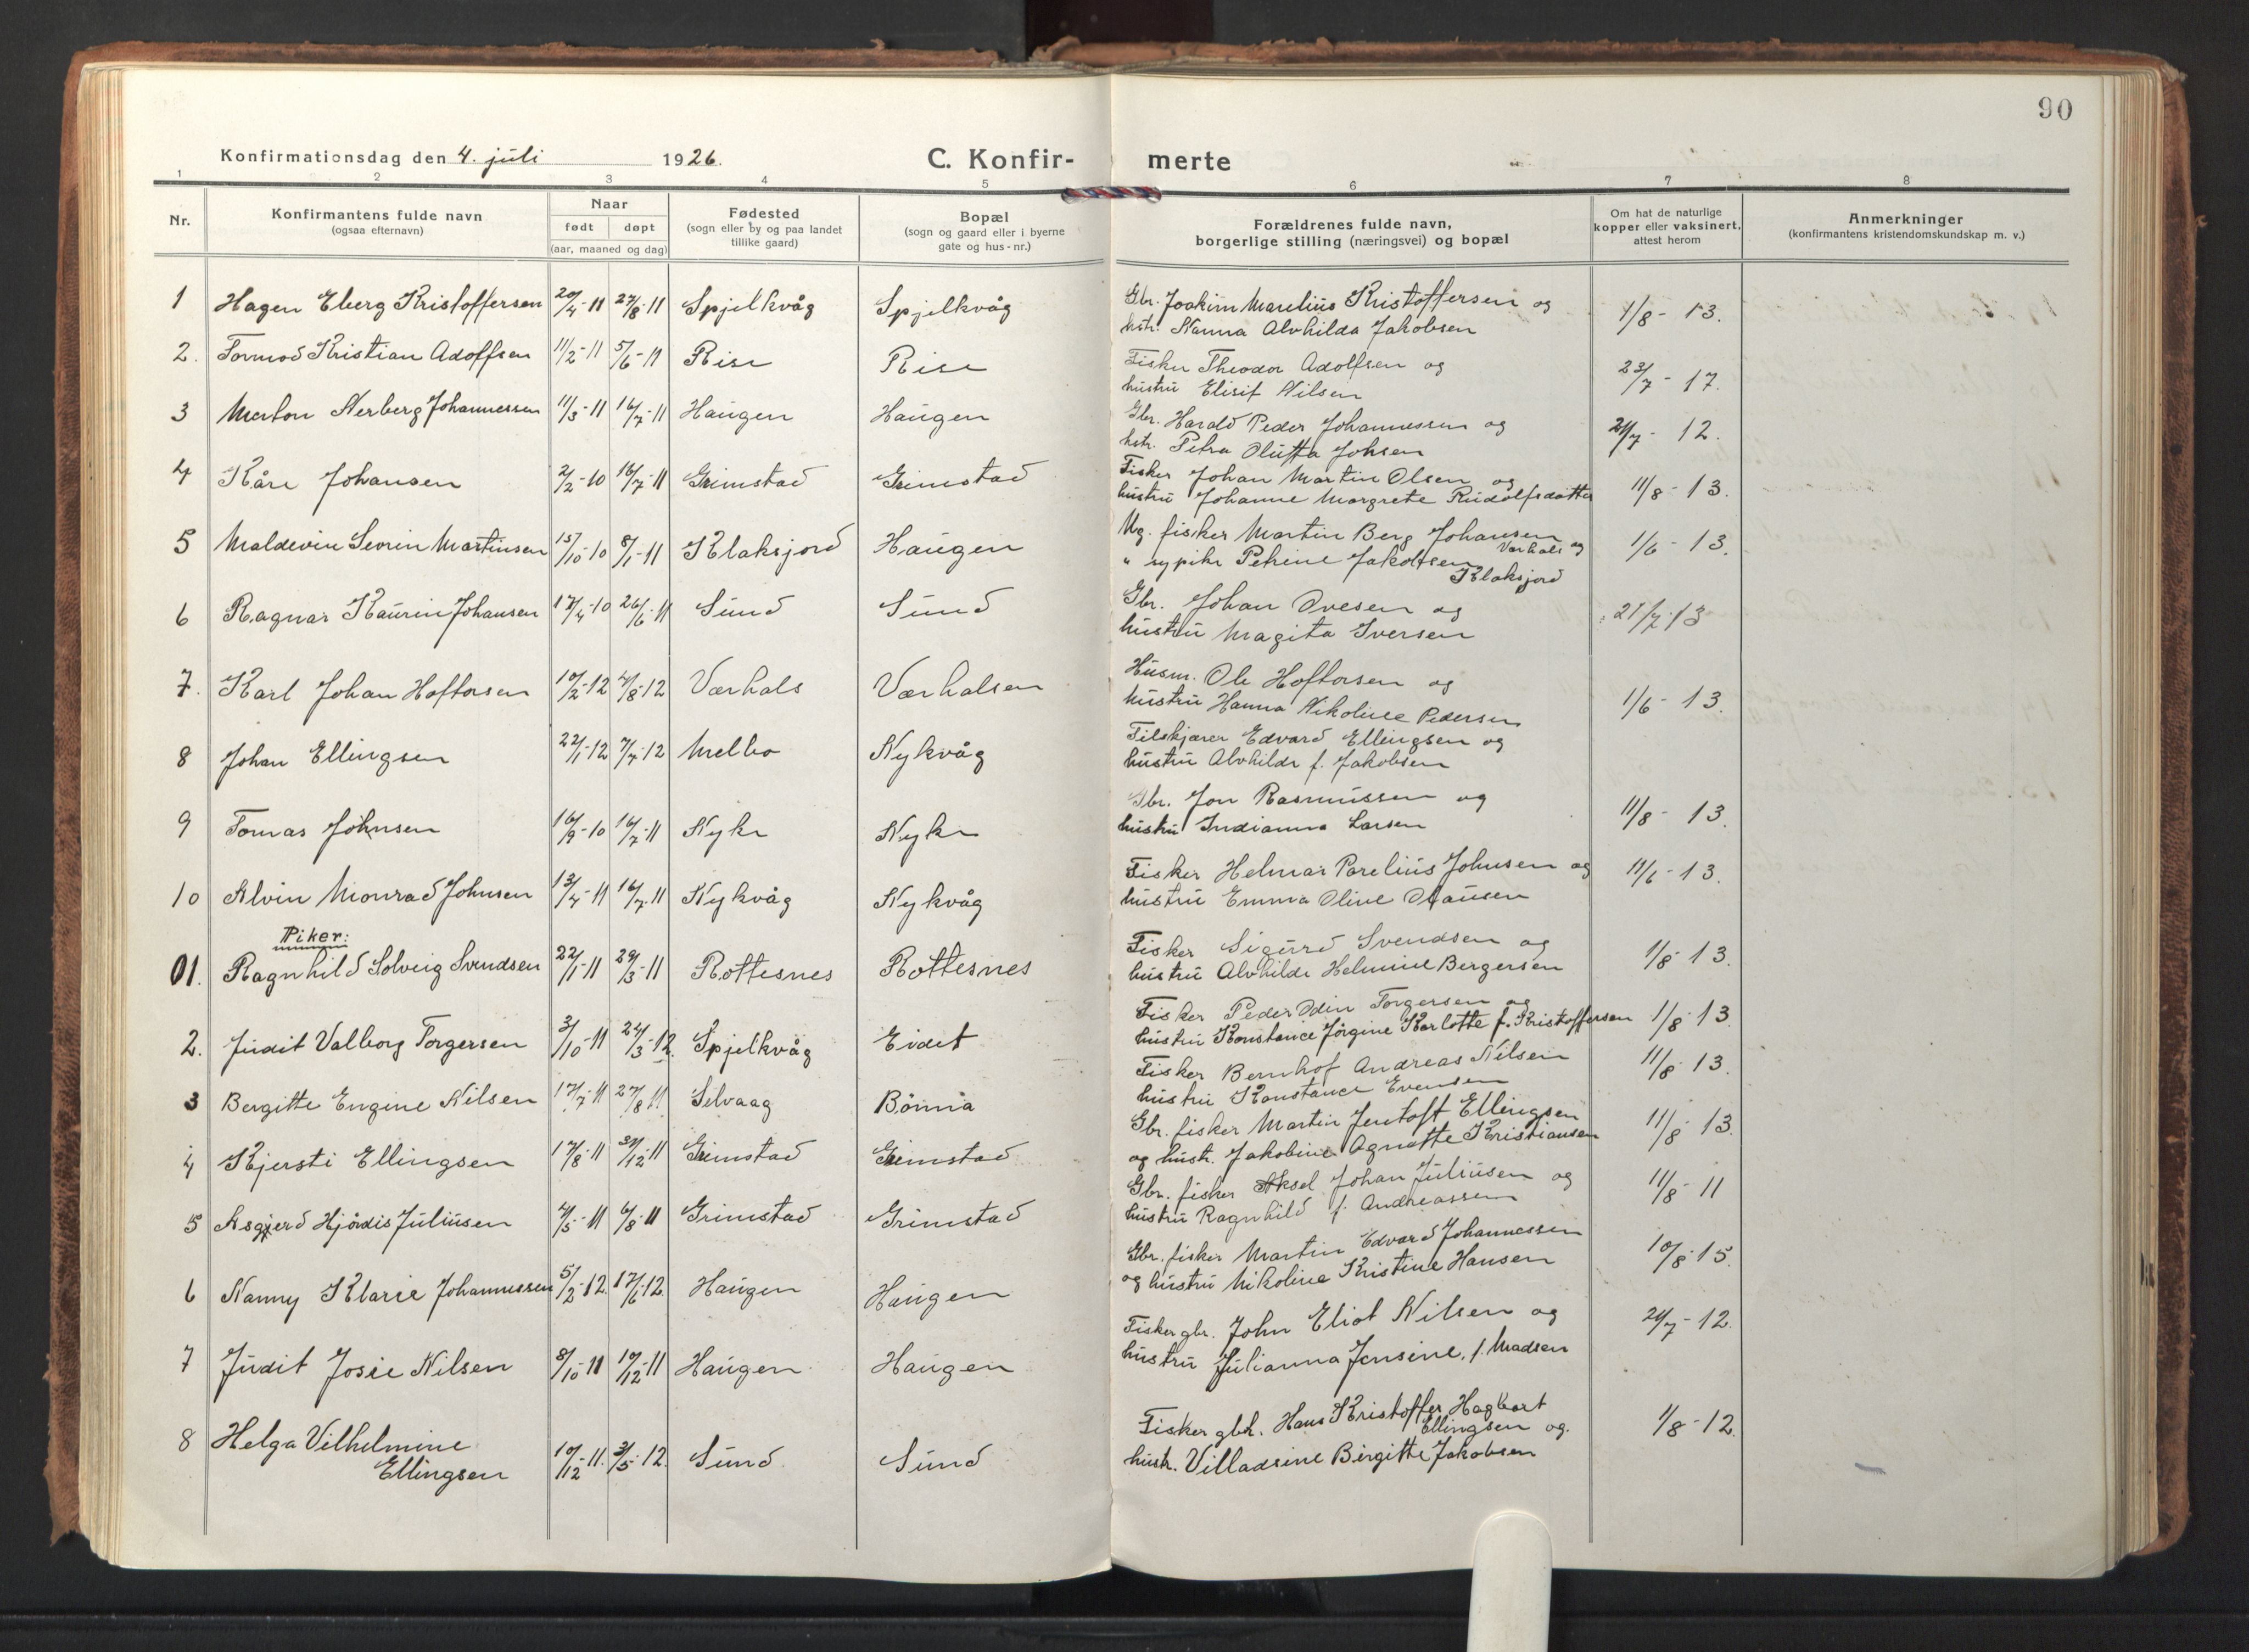 90
Konfirmationsdag den 4. juli 1926.
C. Konfir- merte
1 2 3 4 5 6 7 8
Nr.
Konfirmantens fulde navn
(ogsaa efternavn)
Naar
født døpt
(aar, maaned og dag)
Fødested
(sogn eller by og paa landet
tillike gaard)
Bopæl
(sogn og gaard eller i byerne
gate og hus-nr.)
Forældrenes fulde navn,
borgerlige stilling (næringsvei) og bopæl
Om hat de naturlige
kopper eller vaksinert,
attest herom
Anmerkninger
(konfirmantens kristendomskundskap m. v.)
1 Hagen Eberg Kristoffersen 20/4-11 27/8-11 Spjelkvåg Spjelkvåg
Gbr. Joakim Marelius Kristoffersen og
hstr. Nanna Alvhilda Jakobsen
1/8-13.
2. Tormod Kristian Adolfsen 11/2-11 5/6-11 Rise Rise
Fisker Theodor Adolfsen og
hustru Elisif Nilsen
23/7-17.
3 Marton Nerberg Johannessen 11/3-11 16/7-11 Haugen Haugen
Gbr. Harald Peder Johannessen og
hstr. Petra Olufta Johsen
24/7-12.
4 Kåre Johansen 2/2-10 16/7-11 Grimstad Grimstad
Fisker Johan Martin Olsen og
hustru Johanne Margrete Rudolfsdatter
11/8-13.
5 Maldevin Sevrin Martinsen 15/10-10 8/1-11 Klaksjord Haugen
Ug. fisker Martin Berg Johansen
Varhals og
" sypike Petrine Jakobsen
Klaksjord
1/6-13.
6 Ragnar Kaurin Johansen 17/4-10 26/6-11 Sund Sund
Gbr. Johan Ovesen og
hustru Magita Iversen
21/7-13
7. Karl Johan Hoftorsen 10/2-12 4/8-12 Værhals Værhalsen
Husm. Ole Hoftorsen og
hustru Hanna Nikoline Pedersen
1/6-13.
8 Johan Ellingsen 22/1-12 7/7-12 Melbo Nykvåg
Filskjærer Edvard Ellingsen og
hustru Alvhilde f. Jakobsen
9 Tomas Johnsen 16/9-10 16/7-11 Nyke Nyke
Gbr. Jon Rasmussen og
hustru Indianna Larsen
11/8-13.
10 Alvin Monrad Johnsen 13/4-11 16/7-11 Nykvåg Nykvåg
Fisker Helmar Parelius Johnsen og
hustru Emma Oline Olausen
11/6-13.
Piker:
01. Ragnhild Solveig Svendsen 22/1-11 29/3-11 Rottesnes Rottesnes
Fisker Sigurd Svendsen og
hustru Alvhilde Helmine Bergersen
1/8-13.
2. Judit Valborg Torgersen 3/10-11 24/3-12. Spjelkvåg Eidet
Fisker Peder Odin Torgersen og
hustru Konstance Jørgine Karlotte f. Kristoffersen
1/8-13
3 Bergitte Engine Nilsen 17/7-11 27/8-11 Selvaag Bønna
Fisker Bernhof Andreas Nilsen
hustru Konstance Evensen
11/8-13.
4 Kjersti Ellingsen 17/8-11 31/12-11 Grimstad Grimstad
Gbr. fisker Martin Jentoft Ellingsen
og hustr. Jakobine Agnatte Kristiansen
11/8-13.
5 Asgjerd Hjørdis Juliusen 4/5-11 6/8-11 Grimstad Grimstad
Gbr. fisker Aksel Johan Juliusen og
hustru Ragnhild f. Andreassen
11/8-11
6 Nanny Klarie Johannessen 5/2-12. 17/6-12. Haugen Haugen
Gbr. fisker Martin Edvard Johannessen
og hustru Nikoline Kristine Hansen
10/8-15.
7 Judit Josie Nilsen 8/10-11 10/12-11 Haugen Haugen
Fisker gbr. John Eliot Nilsen og
hustru Julianna Jensine, f. Madsen
24/7-12.
8 Helga Vilhelmine
Ellingsen 10/12-11. 3/5-12. Sund Sund
Fisker gbr. Hans Kristoffer Hagbart
Ellingsen og.
hustr. Villadsine Birgitte Jakobsen
1/8-12.